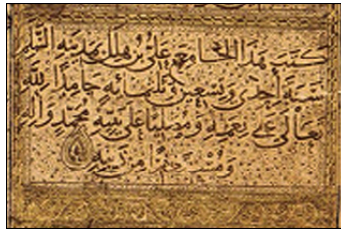 كتب هذا الجامع علي بن هلال بمدينة السلم
سنة إحدى وتسعين وثلثمائة حامدا لله
تعالى على نعمه ومصليا على نبيه محمد وآله
ومستغفرا من ذنبه